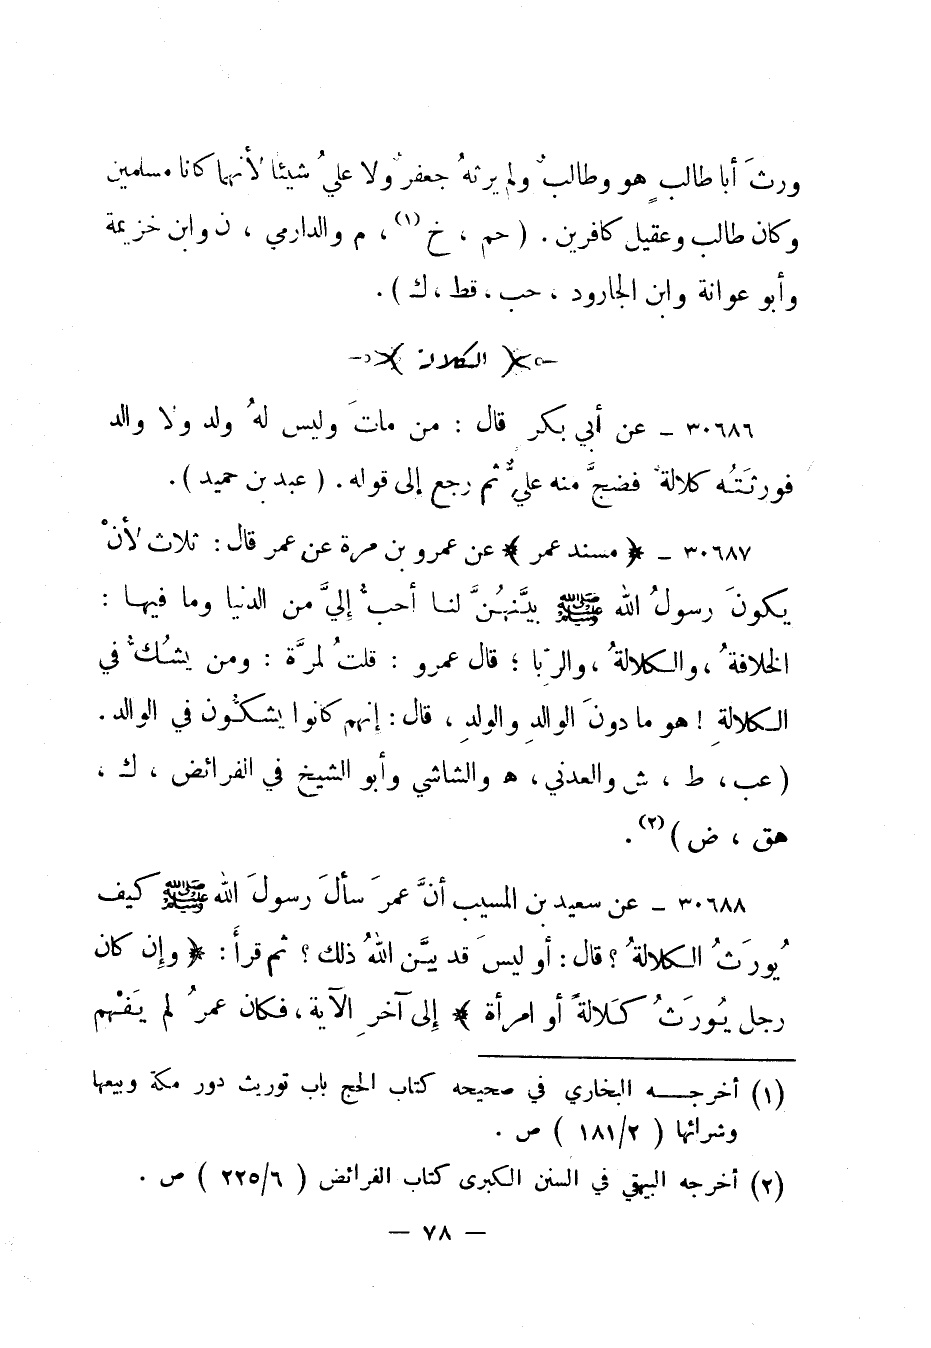 ورثَ أبا طالبٍ هو وطالبٌ ولم يرثهُ جعفرٌ ولا عليٌ شيئا لأنهما كانا مسلمين
وكان طالب وعقيل كافرين . ( حم ، خ (١) ، م والدارمي ، ن وابن خزيمة
وأبو عوانة وابن الجارود ، حب ، قط ، ك ) .
﴿ الكلالة ﴾
٣٠٦٨٦ ـ عن أبي بكر قال : من ماتَ وليس لهُ ولد ولا والد
فورثَتُه كلالةٌ فضجَّ منه عليٌّ ثم رجع إلى قوله . ( عبد بن حميد ) .
٣٠٦٨٧ ـ ﴿ مسند عمر ﴾ عن عمرو بن مرة عن عمر قال : ثلاث لأنْ
يكونَ رسولُ الله ﷺ بيَّنهُنَّ لنا أحبُّ إليَّ من الدنيا وما فيها :
الخلافةُ ، والكلالةُ ، والرِّبا ؛ قال عمرو : قلتُ لمرَّة : ومن يشُكُّ في
الكلالةِ ! هو ما دونَ الوالدِ والولدِ ، قال : إنهم كانوا يشكُّون في الوالد .
( عب ، ط ، ش والعدني ، ه والشاشي وأبو الشيخ في الفرائض ، ك ،
هق ، ض ) (٢) .
٣٠٦٨٨ ـ عن سعيد بن المسيب أنَّ عمرَ سألَ رسولَ الله ﷺ كيف
يُورَثُ الكلالةُ ؟ قال : أو ليسَ قد بيَّن اللهُ ذلك ؟ ثم قرأَ : ﴿ وإن كان
رجل يُورَثُ كَلالةً أو امرأة ﴾ إلى آخرِ الآية ، فكان عمرُ لم يَفْهم
(١) أخرجه البخاري في صحيحه كتاب الحج باب توريث دور مكة وبيعها
وشرائها ( ١٨١/٢ ) ص .
(٢) أخرجه البيهقي في السنن الكبرى كتاب الفرائض ( ٢٢٥/٦ ) ص .
— ٧٨ —